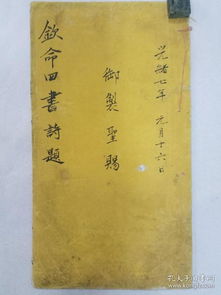 光緒七年 元月十六日
御製聖賜
欽命四書詩題
孔夫子旧书网